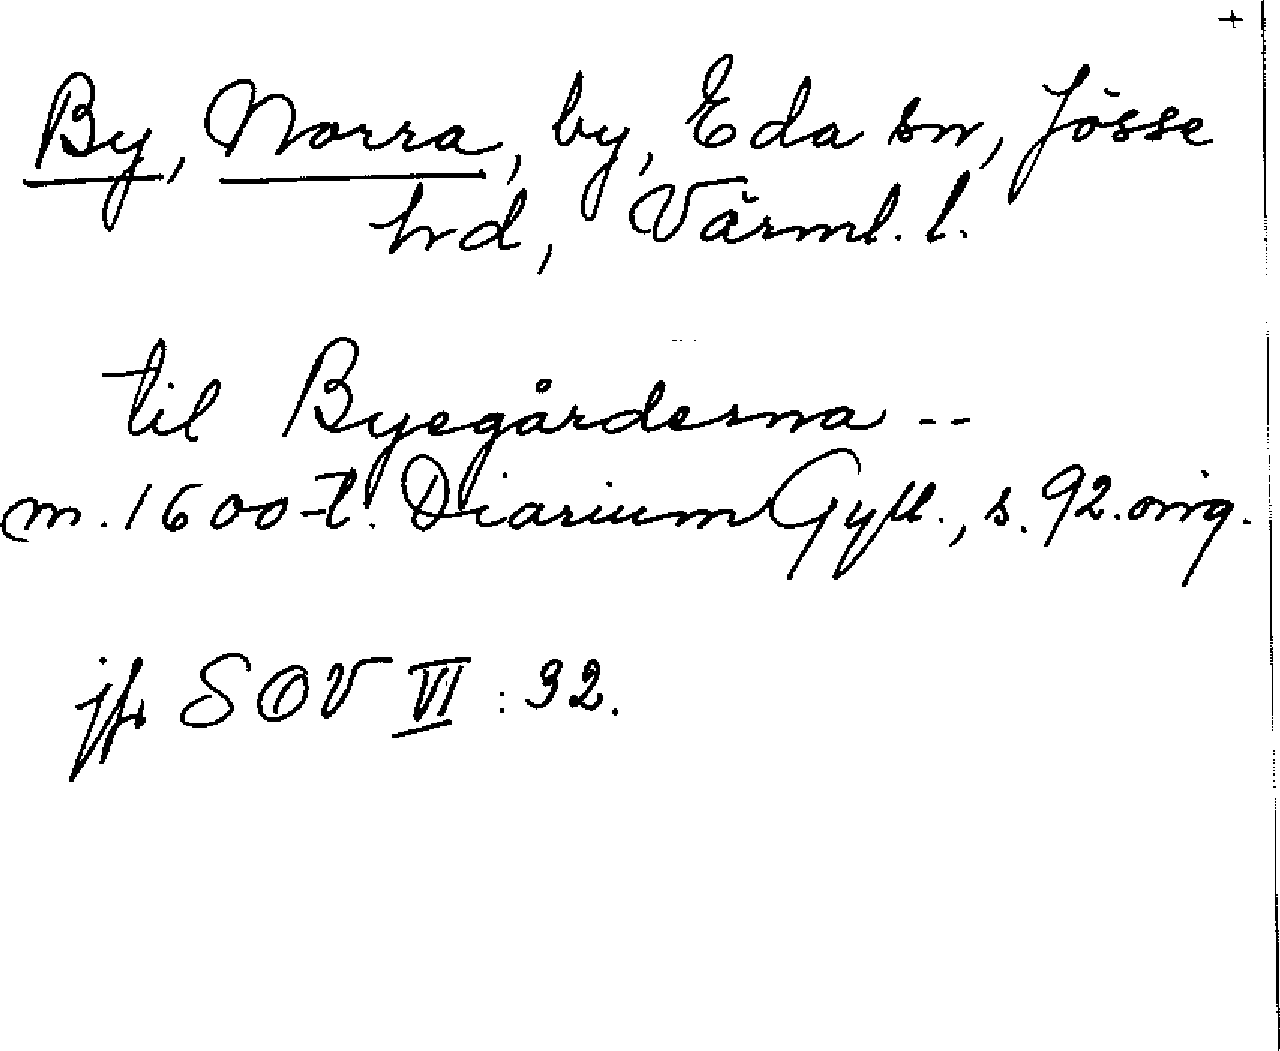 +
By, Norra, by, Eda sn, Jösse
hd, Värml. l.
til Byegårderna --
m. 1600-t. Diarium Gyll., s. 92. orig.
jfr SOV VI : 32.